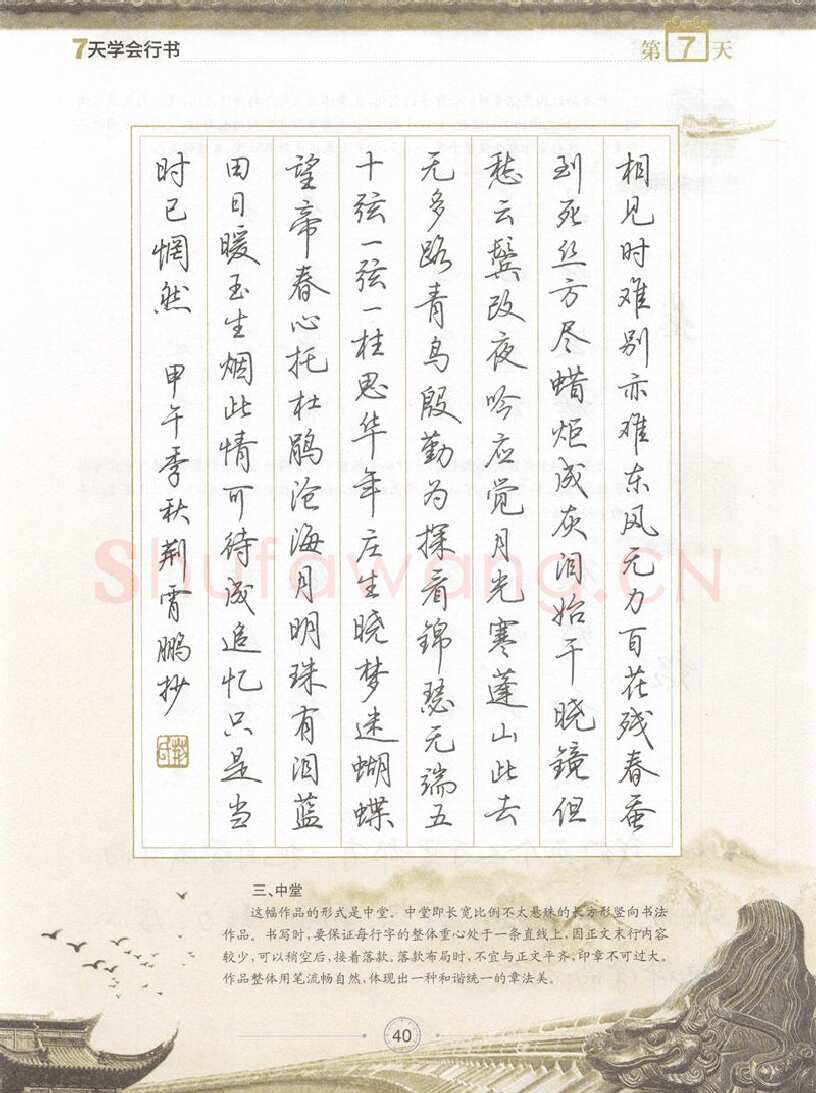 7天学会行书
第7天
相见时难别亦难东风无力百花残春蚕
到死丝方尽蜡炬成灰泪始干晓镜但
愁云鬓改夜吟应觉月光寒蓬山此去
无多路青鸟殷勤为探看锦瑟无端五
十弦一弦一柱思华年庄生晓梦迷蝴蝶
望帝春心托杜鹃沧海月明珠有泪蓝
田日暖玉生烟此情可待成追忆只是当
时已惘然 甲午季秋荆霄鹏抄
Shufawang.CN
三、中堂
这幅作品的形式是中堂。中堂即长宽比例不太悬殊的长方形竖向书法
作品。书写时,要保证每行字的整体重心处于一条直线上,因正文末行内容
较少,可以稍空后,接着落款,落款布局时,不宜与正文平齐,印章不可过大。
作品整体用笔流畅自然,体现出一种和谐统一的章法美。
40